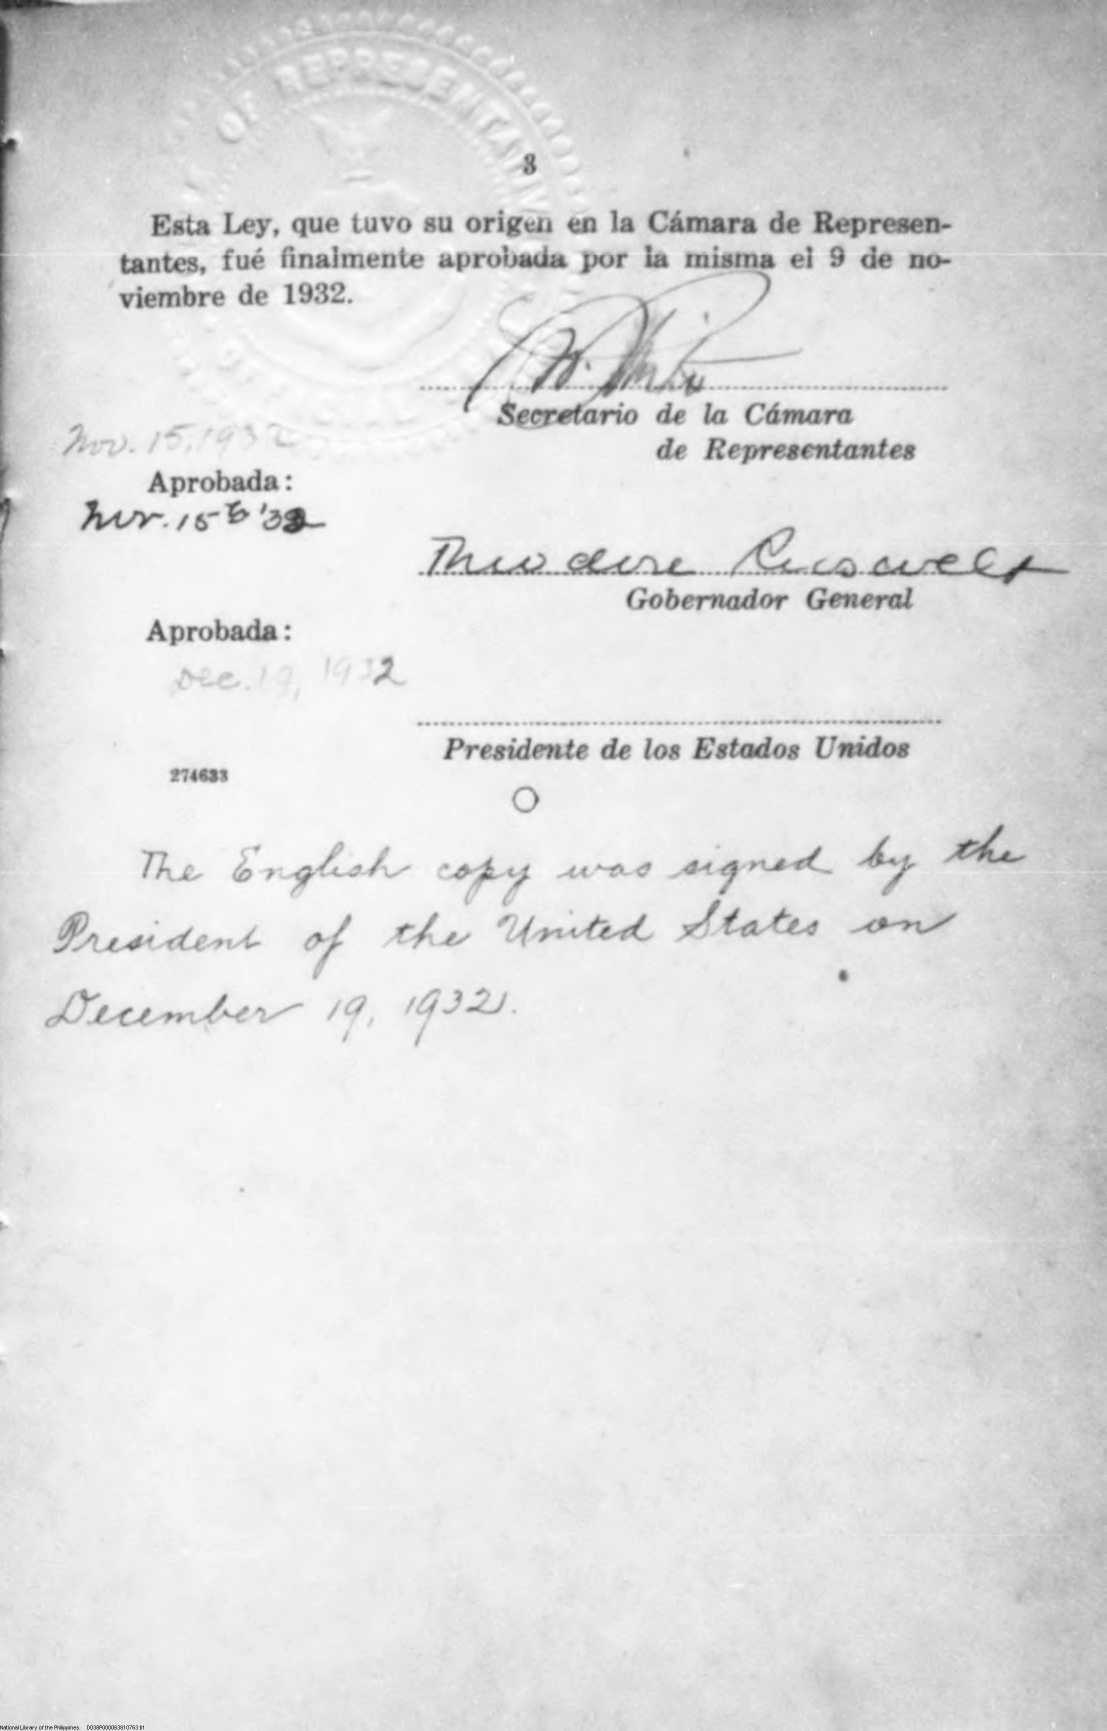 OF REPRESENTATIV
3
Esta Ley, que tuvo su origen en la Cámara de Represen-
tantes, fué finalmente aprobada por la misma el 9 de no-
viembre de 1932.
Secretario de la Cámara
de Representantes
Nov. 15, 1932
Aprobada:
Nov. 15 '32
Theodore Roosevelt
Gobernador General
Aprobada:
Dec. 19, 1932
Presidente de los Estados Unidos
274633
The English copy was signed by the
President of the United States on
December 19, 1932.
National Library of the Philippines